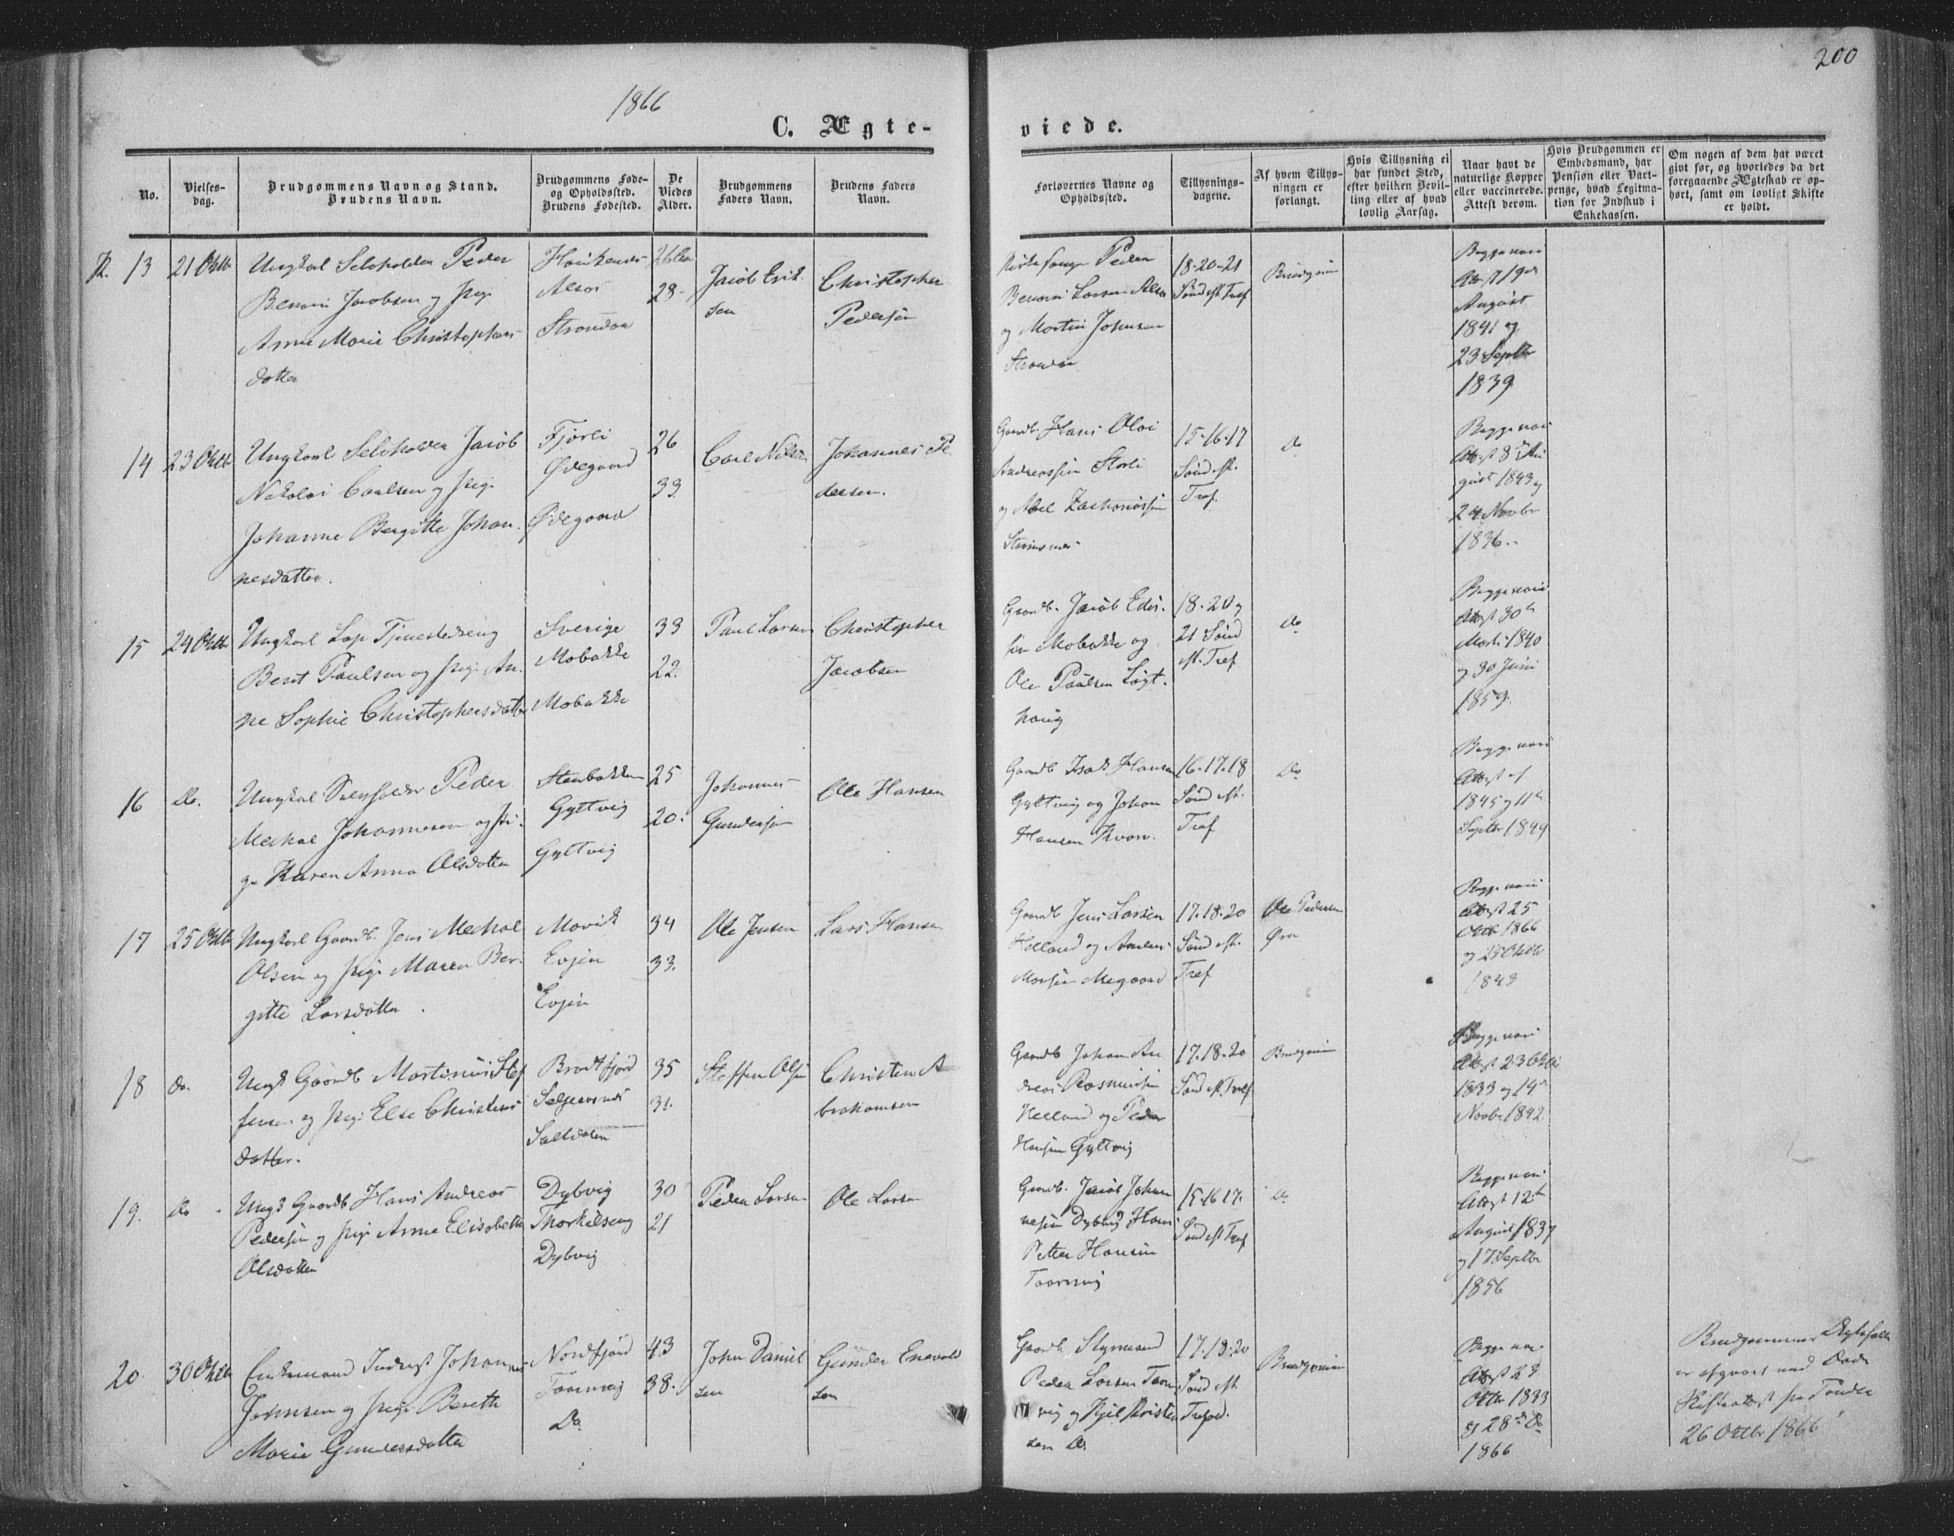 200
1866
C. Ægte-
viede.
No.
Vielses-
dag.
Brudgommens Navn og Stand.
Brudens Navn.
Brudgommens Føde-
og Opholdssted.
Brudens Fødested.
De
Viedes
Alder.
Brudgommens
Faders Navn.
Brudens Faders
Navn.
Forlovernes Navne og
Opholdssted.
Tillysnings-
dagene.
Af hvem Tillys-
ningen er
forlangt.
Hvis Tillysning ei
har fundet Sted,
efter hvilken Bevil-
ling eller af hvad
lovlig Aarsag.
Naar havt de
naturlige Kopper
eller vaccinerede.
Attest derom.
Hvis Brudgommen er
Embedsmand, har
Pension eller Vart-
penge, hvad Legitima-
tion for Indskud i
Enkekassen.
Om nogen af dem har været
givt før, og hvorledes da det
foregaaende Ægteskab er op-
hørt, samt om lovligt Skifte
er holdt.
13
21 Oktb
Ungkarl Selvholder Peder
Benoni Jacobsen og Pige
Anne Marie Christophers
datter
Alsos
Strandaa
28
Jacob Erik
sen
Christopher
Pedersen
Kirkesanger Peder
Benoni Larsen Alsos
og Martin Johnsen
Strandaa
18-20-21
Sønd eft Tref
Brudgom
Begge vacc
Attest 19de
August
1841 og
23 Septbr
1839
14
23 Oktb
Ungkarl Selvholder Jacob
Nikolai Carlsen og Pige
Johanne Bergitte Johan
nesdatter.
Fjorli
Ødegaard
Ødegaard
26
33
Carl Nilsen
Johannes Pe
dersen.
Gaardb. Hans Olai
Andreassen Storli
og Abel Zachariassen
15-16-17
Sønd eft.
Tref.
Do
Begge vacc
Attest 8de Au
gust 1843 og
24 Novbr
1836
15
24 Oktb
Ungkarl Lap Tjenestedreng
Berit Paulsen og Pige An
ne Sophie Christophersdatter
Sverige
Mobakke
Mobakke
33
22
Paul Larsen
Christopher
Jacobsen
Gaardb. Jacob Edis-
sen Mobakke og
Ole Paulsen Løgt-
haug
18-20 og
21 Sønd
eft. Tref
Do
Begge vacc
Attest 30te
Marts 1840
og 30 Juni
1859
16
Do.
Ungkarl Selvholder Peder
Mechal Johannesen og Pi-
ge Karen Anna Olsdatter
Stenbakken
Gyltvig
Gyltvig
25
20
Johannes
Gundersen
Ole Hansen
Gaardb Isak Hansen
Gyltvig og Johan
Hansen Kvarv.
16-17-18
Sønd eft.
Tref
Do
Begge vacc
Attest af
1845 og 11te
Septbr 1849
17
25 Oktb
Ungkarl Gaardb. Jens Mechal
Olsen og Pige Maren Ber-
gitte Larsdatter
Movik
Evjen
Evjen
34
33
Ole Jensen
Lars Hansen
Gaardb Jens Larsen
Helland og
Megaard
17-18-20
Sønd eft.
Tref
Ole Pedersen
Øra
Begge vacc
Attest 25
Oktb 1866
og 25 Oktb
1843
18
do.
Ungk Gaardb Martinus Stef
fensen og Pige Else Christens
datter.
Brudtfjord
Saltdalen
35
31
Steffen Olsen
Christen A
brahamsen
Gaardb Johan An
dreas Rasmussen
Helland og Peder
Hansen Gyltvig
17-18-20
Sønd eft Tref
Brudgom
Begge vacc
Attest 23 Oktb
1833 og 14de
Novbr 1842
19
do
Ungk Gaardb Hans Andreas
Pedersen og Pige Anne Elisabeth
Olsdatter
Dybvig
Thorkilseng
Dybvig
30
21
Peder Larsen
Ole Larsen
Gaardb. Jacob Johan
nesen Dybvig Hans
Petter Hansen
Taarnvig
15-16-17
Sønd eft Tref
Do
Begge vacc
Attest 12te
August 1837
og 17 Septbr
1856
20
30 Oktb
Enkemand Indergst Johannes
Johnsen og Pige Bereth
Marie Gundersdatter
Nordfjord
Taarnvig
Do
43
38
John Daniel
sen
Gunder Enevold
sen
Gaardb Sigmund
Peder Larsen Taarn
vig og Kjel Christen
sen do
17-18-20
Sønd eft.
Trefod.
Brudgommen
Begge vacc
Attest 23
Oktbr 1833
og 28de do
1866
Brudgommens Ægteskab
er afgjort ved Døds
Skifteattest fra Fonden
26 Oktbr 1866